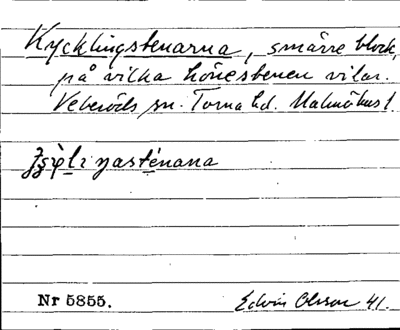 Kycklingstenarna, smärre block,
på vilka hönestenen vilar.
Veberöds sn. Torna hd. Malmöhus l.
Nr 5855. Edvin Olsson 41.